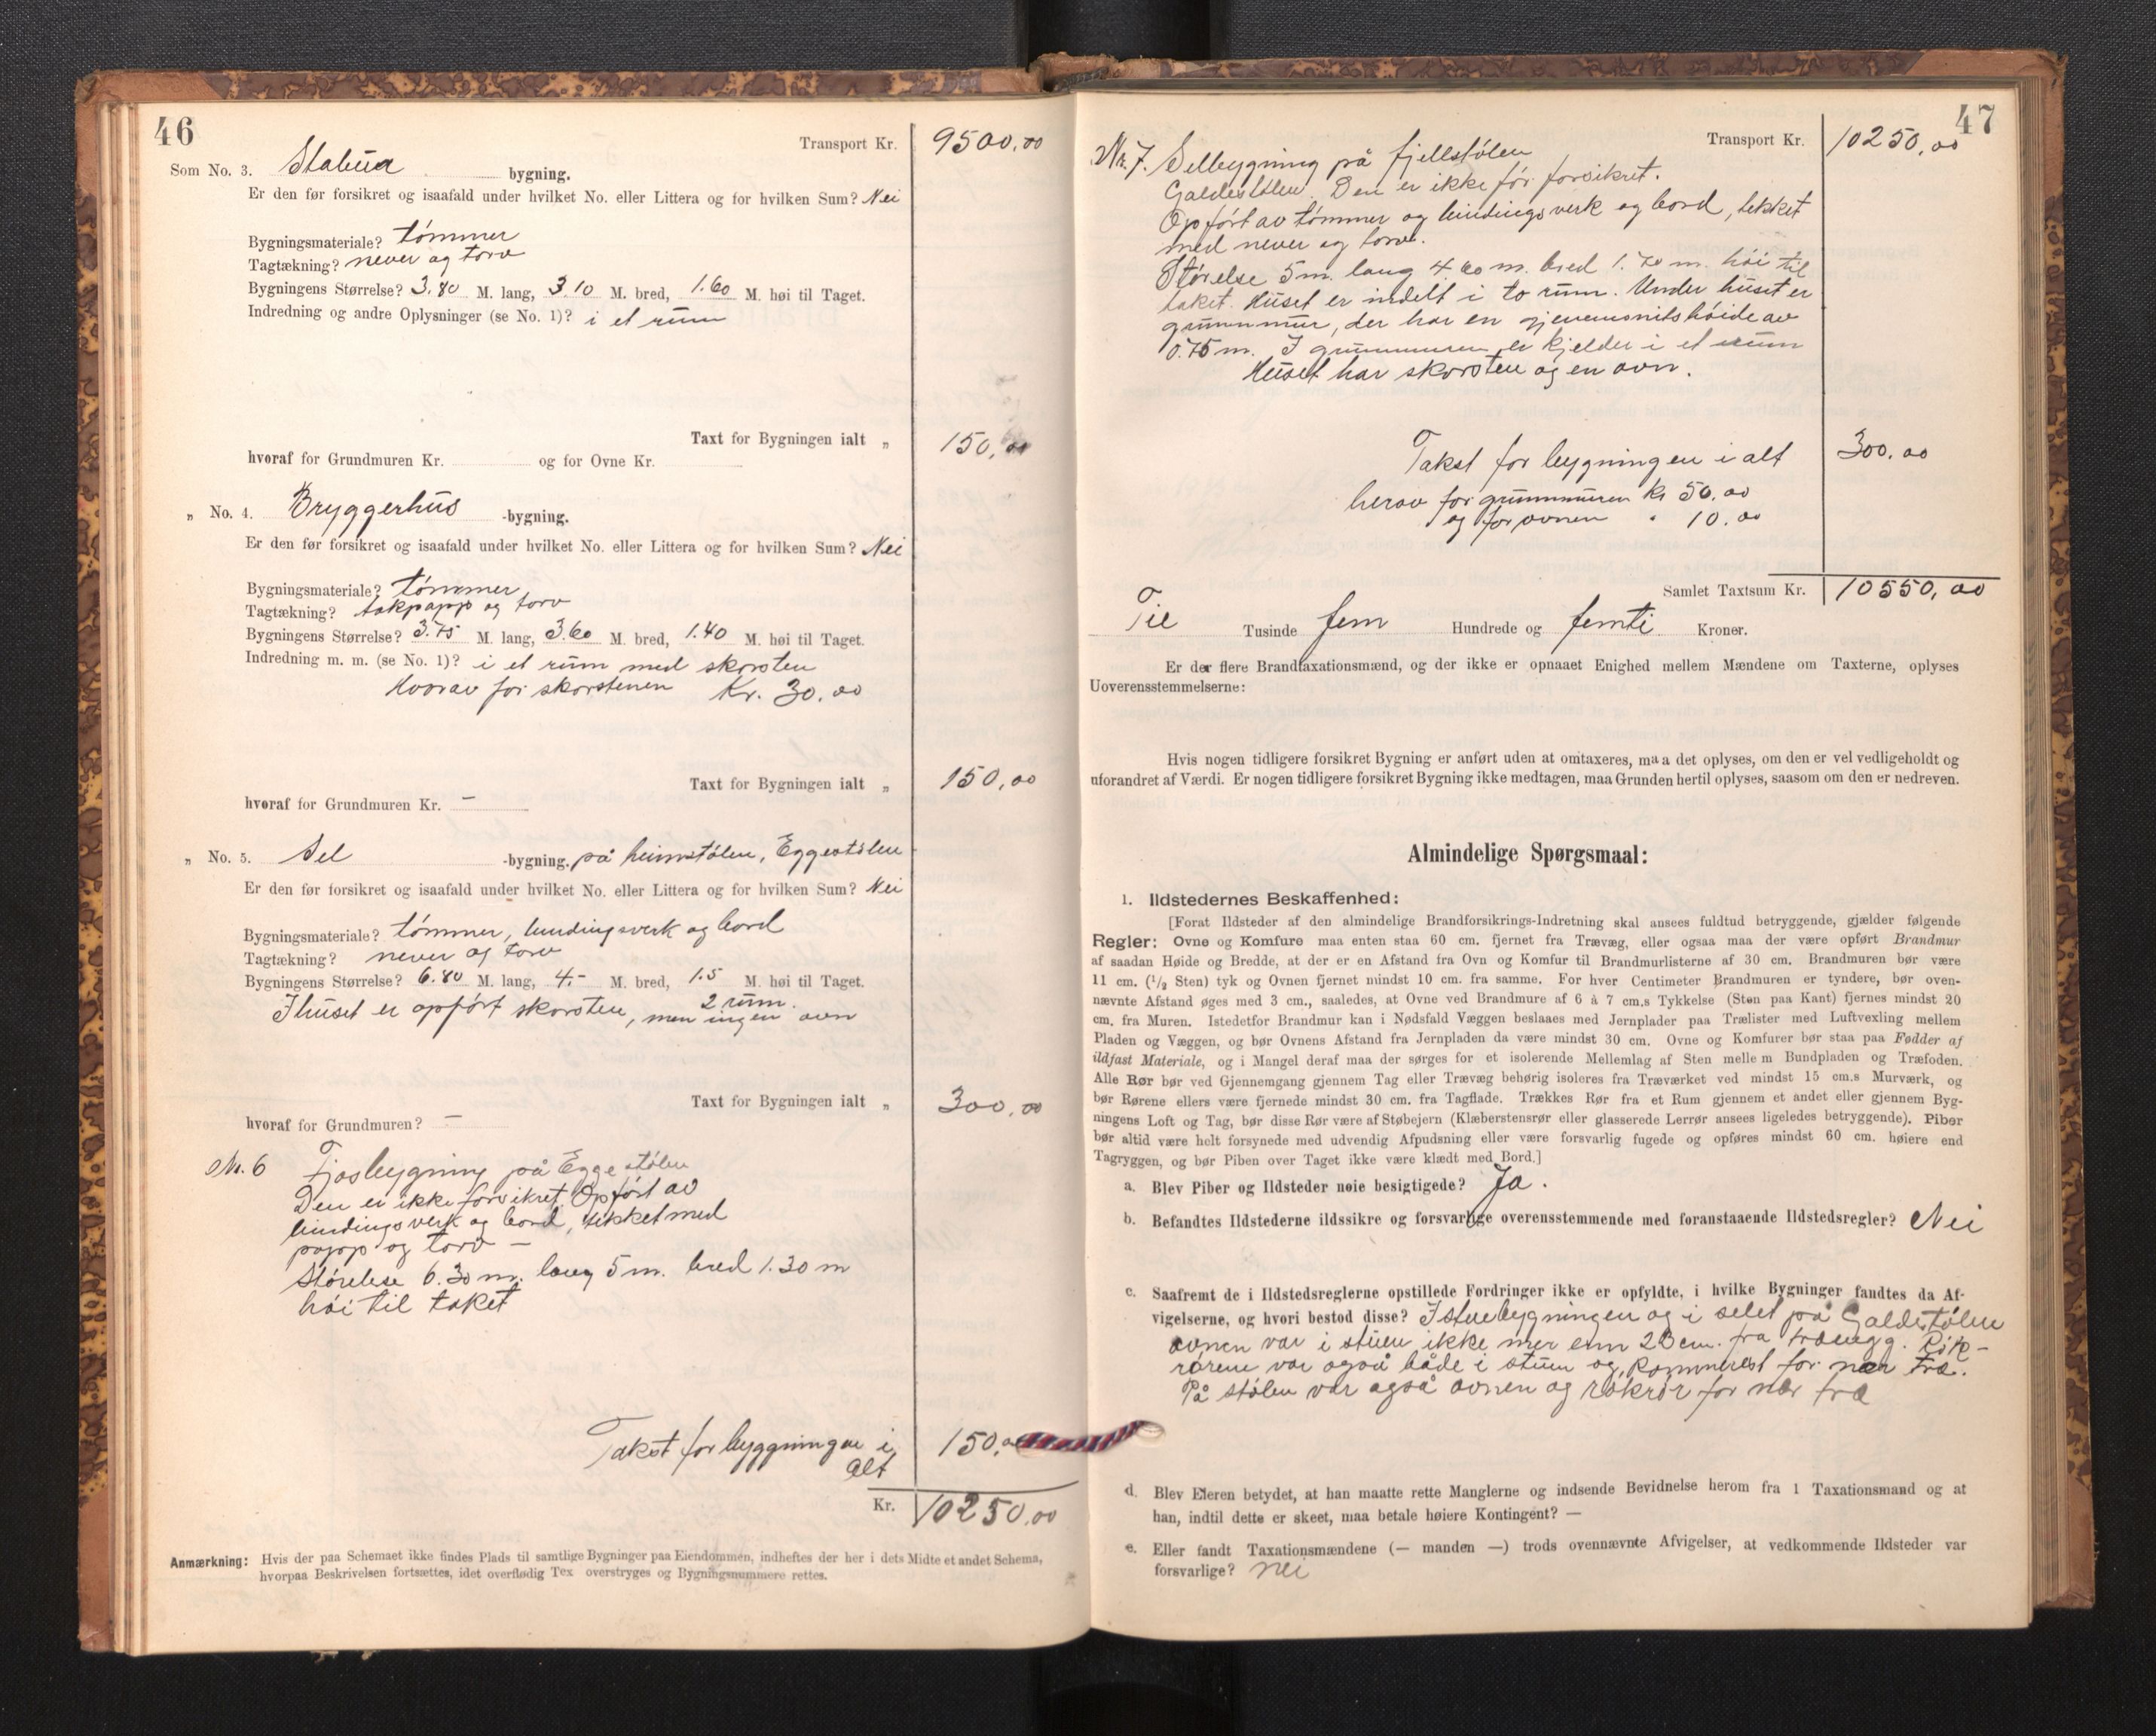 46
Transport Kr. 9500,00
Som No. 3. Stabur bygning.
Er den før forsikret og isaafald under hvilket No. eller Littera og for hvilken Sum? Nei
Bygningsmateriale? tømmer
Tagtækning? never og torv
Bygningens Størrelse? 3.80 M. lang, 3.10 M. bred, 1.60 M. høi til Taget.
Indredning og andre Oplysninger (se No. 1)? i et rum
Taxt for Bygningen ialt „ 150,00
hvoraf for Grundmuren Kr. og for Ovne Kr.
„ No. 4. Bryggerhus -bygning.
Er den før forsikret og isaafald under hvilket No. eller Littera og for hvilken Sum? Nei
Bygningsmateriale? tømmer
Tagtækning? takpapp og torv
Bygningens Størrelse? 3.75 M. lang, 3.60 M. bred, 1.40 M. høi til Taget.
Indredning m. m. (se No. 1)? i et rum med skorsten
Hvorav for skorstenen Kr. 30,00
Taxt for Bygningen ialt „ 150,00
hvoraf for Grundmuren Kr. —
„ No. 5. Sel -bygning. på heimstølen, Eggestølen
Er den før forsikret og isaafald under hvilket No. eller Littera og for hvilken Sum? Nei
Bygningsmateriale? tømmer, bindingsverk og bord
Tagtækning? never og torv
Bygningens Størrelse? 6.80 M. lang, 4.- M. bred, 1.5 M. høi til Taget.
2 rum.
I huset er opført skorsten, men ingen ovn
Taxt for Bygningen ialt „ 300,00
hvoraf for Grundmuren? —
Nr. 6 Fjosbygning på Eggestølen
Den er ikke forsikret. Opført av
bindingsverk og bord, tekket med
papp og torv —
Størelse 6.30 m. lang 5 m. bred 1.30 m
høi til taket
Takst for byggningen i
alt 150,00
Kr. 10250,00
Anmærkning: Hvis der paa Schemaet ikke findes Plads til samtlige Bygninger paa Eiendommen, indheftes der her i dets Midte et andet Schema,
hvorpaa Beskrivelsen fortsættes, idet overflødig Tex overstryges og Bygningsnummere rettes.
47
Transport Kr. 10250,00
Nr. 7. Selbygning på fjellstølen
Galdestølen. Den er ikke før forsikret.
Opført av tømmer og bindingsverk og bord, tekket
med never og torv.
Størelse 5 m. lang 4.60 m. bred 1.70 m. høi til
taket. Huset er indelt i to rum. Under huset er
grunnmur, der har en gjenemsnitshøide av
0.75 m. I grunnmuren er kjelder i et rum
Huset har skorsten og en ovn.
Takst for bygningen i alt 300,00
herav for grunnmuren kr 50,00
og for ovnen " 10,00
Samlet Taxtsum Kr. 10550,00
Til Tusinde fem Hundrede og femti Kroner.
Er der flere Brandtaxationsmænd, og der ikke er opnaaet Enighed mellem Mændene om Taxterne, oplyses
Uoverensstemmelserne:
Hvis nogen tidligere forsikret Bygning er anført uden at omtaxeres, maa det oplyses, om den er vel vedligeholdt og
uforandret af Værdi. Er nogen tidligere forsikret Bygning ikke medtagen, maa Grunden hertil oplyses, saasom om den er nedreven.
Almindelige Spørgsmaal:
1. Ildstedernes Beskaffenhed:
[Forat Ildsteder af den almindelige Brandforsikrings-Indretning skal ansees fuldtud betryggende, gjælder følgende
Regler: Ovne og Komfure maa enten staa 60 cm. fjernet fra Trævæg, eller ogsaa maa der være opført Brandmur
af saadan Høide og Bredde, at der er en Afstand fra Ovn og Komfur til Brandmurlisterne af 30 cm. Brandmuren bør være
11 cm. (1/2 Sten) tyk og Ovnen fjernet mindst 10 cm. fra samme. For hver Centimeter Brandmuren er tyndere, bør oven-
nævnte Afstand øges med 3 cm., saaledes, at Ovne ved Brandmure af 6 à 7 cm.s Tykkelse (Sten paa Kant) fjernes mindst 20
cm. fra Muren. Istedetfor Brandmur kan i Nødsfald Væggen beslaaes med Jernplader paa Trælister med Luftvexling mellem
Pladen og Væggen, og bør Ovnens Afstand fra Jernpladen da være mindst 30 cm. Ovne og Komfurer bør staa paa Fødder af
ildfast Materiale, og i Mangel deraf maa der sørges for et isolerende Mellemlag af Sten mellem Bundpladen og Træfoden.
Alle Rør bør ved Gjennemgang gjennem Tag eller Trævæg behørig isoleres fra Træværket ved mindst 15 cm.s Murværk, og
bør Rørene ellers være fjernede mindst 30 cm. fra Tagflade. Trækkes Rør fra et Rum gjennem et andet eller gjennem Byg-
ningens Loft og Tag, bør disse Rør være af Støbejern (Klæberstensrør eller glasserede Lerrør ansees ligeledes betryggende). Piber
bør altid være helt forsynede med udvendig Afpudsning eller være forsvarlig fugede og opføres mindst 60 cm. høiere end
Tagryggen, og bør Piben over Taget ikke være klædt med Bord.]
a. Blev Piber og Ildsteder nøie besigtigede? Ja.
b. Befandtes Ildstederne ildssikre og forsvarlige overensstemmende med foranstaaende Ildstedsregler? Nei
c. Saafremt de i Ildstedsreglerne opstillede Fordringer ikke er opfyldte, i hvilke Bygninger fandtes da Af-
vigelserne, og hvori bestod disse? I stuebygningen og i selet på Galdestølen
ovnen var i stuen ikke mer enn 23 cm. fra trævegg. Røk-
rørene var også både i stuen og for nær træ.
På stølen var også ovnen og røkrør for nær træ
d. Blev Eieren betydet, at han maatte rette Manglerne og indsende Bevidnelse herom fra 1 Taxationsmand og at
han, indtil dette er skeet, maa betale høiere Kontingent? —
e. Eller fandt Taxationsmændene (— manden —) trods ovennævnte Afvigelser, at vedkommende Ildsteder var
forsvarlige? nei